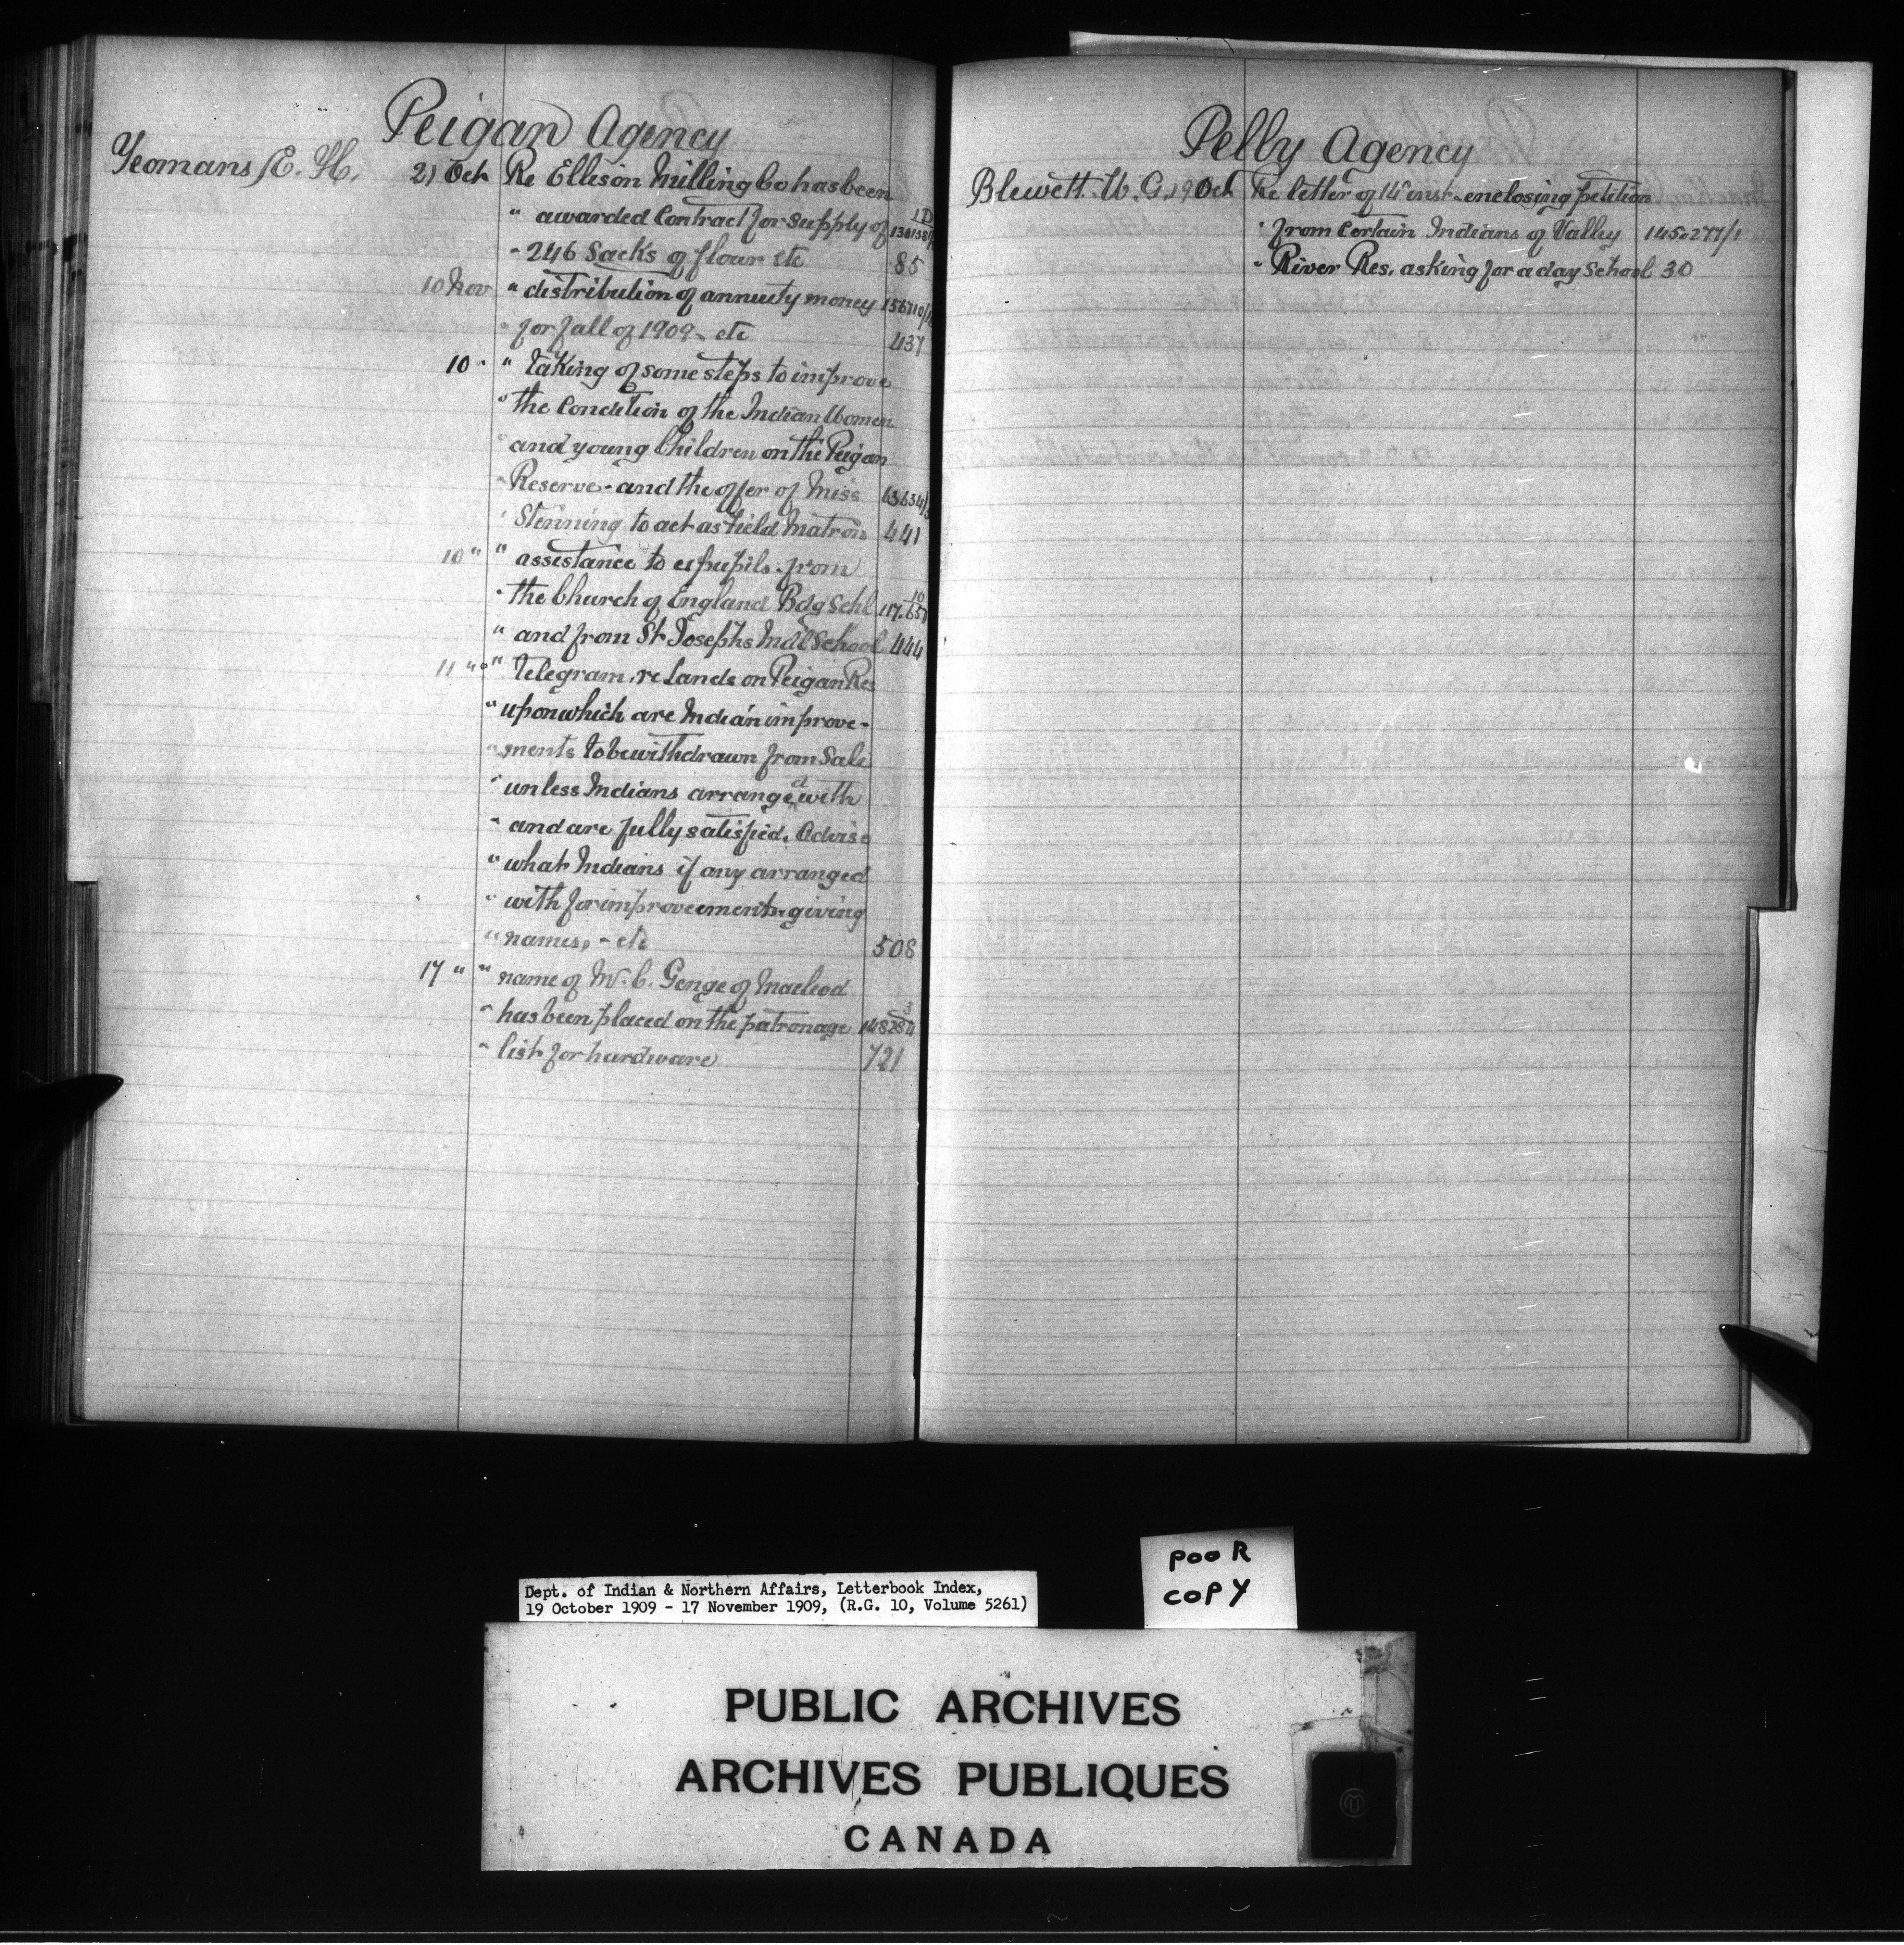 Peigan Agency
Yeomans E. H. 21 Oct Re Ellison Milling Co has been
" awarded Contract for supply of
" 246 Sacks of flour etc 85
10 Nov " distribution of annuity money
" for fall of 1909 - etc 437
10 " " taking of some steps to improve
" the Condition of the Indian Women
" and young Children on the Peigan
" Reserve - and the offer of Miss
" Stenning to act as field Matron 441
10 " " assistance to expupils from
" the Church of England Bdg Schl
" and from St Josephs Indl School 444
11 " " telegram, re lands on Peigan Res
" upon which are Indian improve-
" ments to be withdrawn from Sale
" unless Indians arranged with
" and are fully satisfied. Advise
" what Indians if any arranged
" with for improvements giving
" names, - etc 508
17 " " name of M. C. Genge of Macleod
" has been placed on the patronage
" list for hardware 721
Pelly Agency
Blewett W. G. 19 Oct Re letter of 14" inst - enclosing petition
" from Certain Indians of Valley 145277/1
" River Res. asking for a day School 30
POOR
COPY
Dept. of Indian & Northern Affairs, Letterbook Index,
19 October 1909 - 17 November 1909, (R.G. 10, Volume 5261)
PUBLIC ARCHIVES
ARCHIVES PUBLIQUES
CANADA